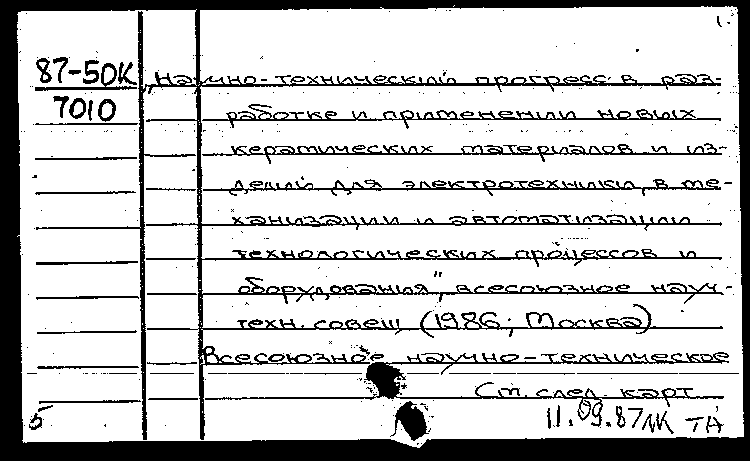 1.
87-50К „Научно-технический прогресс в раз-
7010 работке и применении новых
керамических материалов и из-
делий для электротехники, в ме-
ханизации и автоматизации
технологических процессов и
оборудования“, всесоюзное науч.-
техн. совещ. (1986; Москва)
Всесоюзное научно-техническое
См. след. карт.
5 11.09.87 ЛК ТА